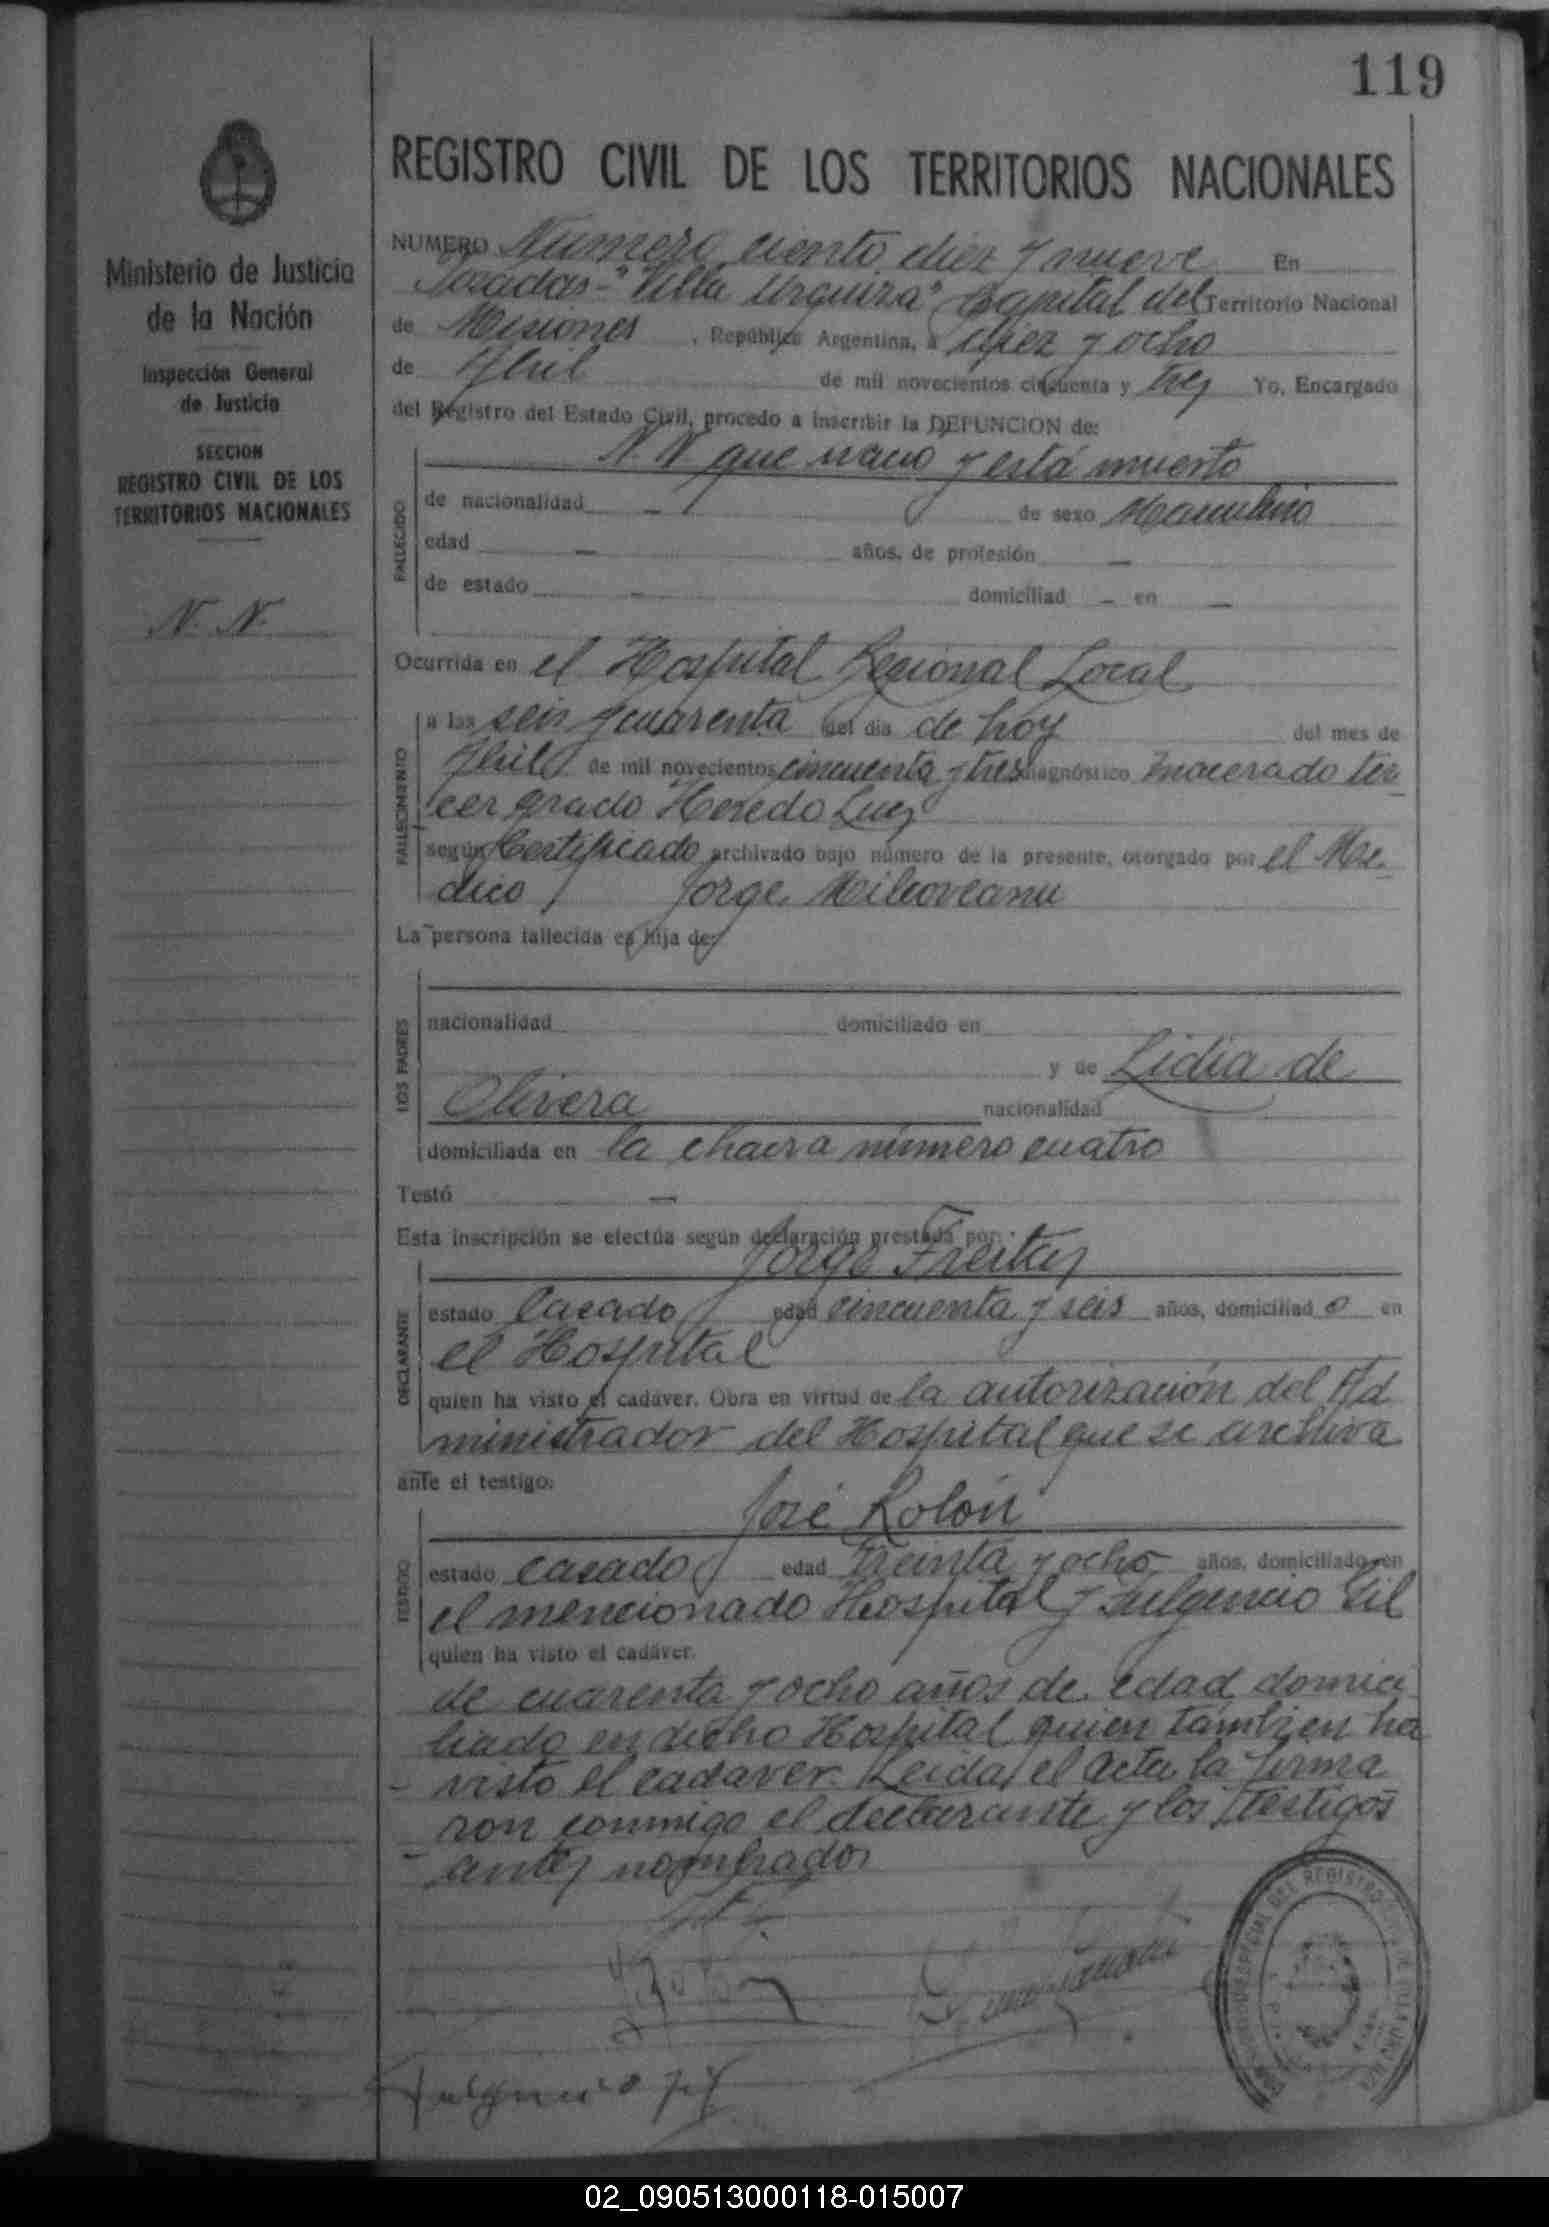 119
REGISTRO CIVIL DE LOS TERRITORIOS NACIONALES
Ministerio de Justicia
de la Nación
Inspección General
de Justicia
SECCION
REGISTRO CIVIL DE LOS
TERRITORIOS NACIONALES
N. N.
NUMERO Número ciento diez y nueve En
Posadas - "Villa Urquiza" Capital del Territorio Nacional
de Misiones, República Argentina, a diez y ocho
de Abril de mil novecientos cincuenta y tres Yo, Encargado
del Registro del Estado Civil, procedo a inscribir la DEFUNCION de:
N. N que nació y está muerto
FALLECIDO
de nacionalidad - de sexo Masculino
edad - años, de profesión -
de estado - domiciliad - en -
Ocurrida en el Hospital Regional Local
FALLECIMIENTO
a las seis y cuarenta del dia de hoy del mes de
Abril de mil novecientos cincuenta y tres diagnóstico Macerado ter
cer grado Heredo Lues
según Certificado archivado bajo número de la presente, otorgado por el Mé-
dico Jorge Milcoveanu
La persona fallecida es hija de:
LOS PADRES
nacionalidad domiciliado en
y de Lidia de
Olivera nacionalidad
domiciliada en la chacra número cuatro
Testó -
Esta inscripción se efectúa según declaración prestada por:
Jorge Freitas
DECLARANTE
estado Casado edad cincuenta y seis años, domiciliad o en
el Hospital
quien ha visto el cadáver. Obra en virtud de la autorización del Ad
ministrador del Hospital que se archiva
ante el testigo:
José Rolón
TESTIGO
estado casado edad treinta y ocho años, domiciliado en
el mencionado Hospital y Fulgencio Gil
quien ha visto el cadáver.
de cuarenta y ocho años de edad domici
liado en dicho Hospital quien también ha
visto el cadaver. Leida el acta la firma
ron conmigo el declarante y los testigos
antes nombrados
Fulgencio Gil
02_090513000118-015007